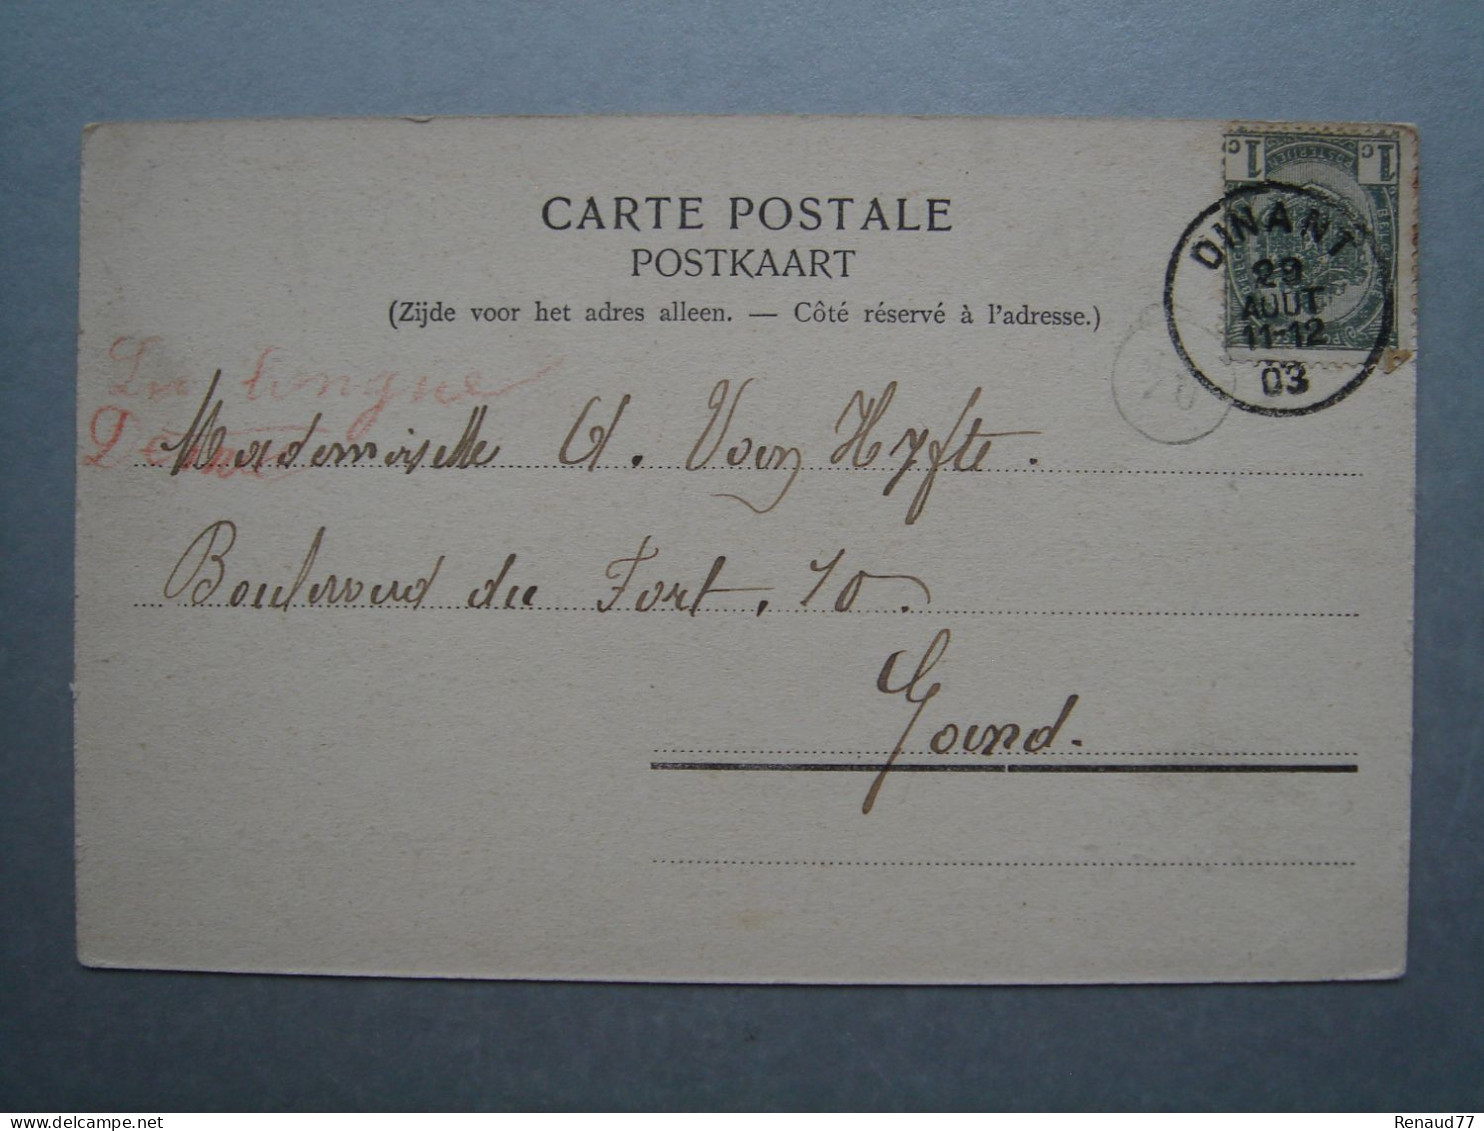 CARTE POSTALE
POSTKAART
(Zijde voor het adres alleen. — Côté réservé à l'adresse.)
1 c 1 c
DINANT
29
AOUT
11-12
03
Mademoiselle A. Van Hyfte.
Boulevard du Fort. 10.
Gand.
Renaud77